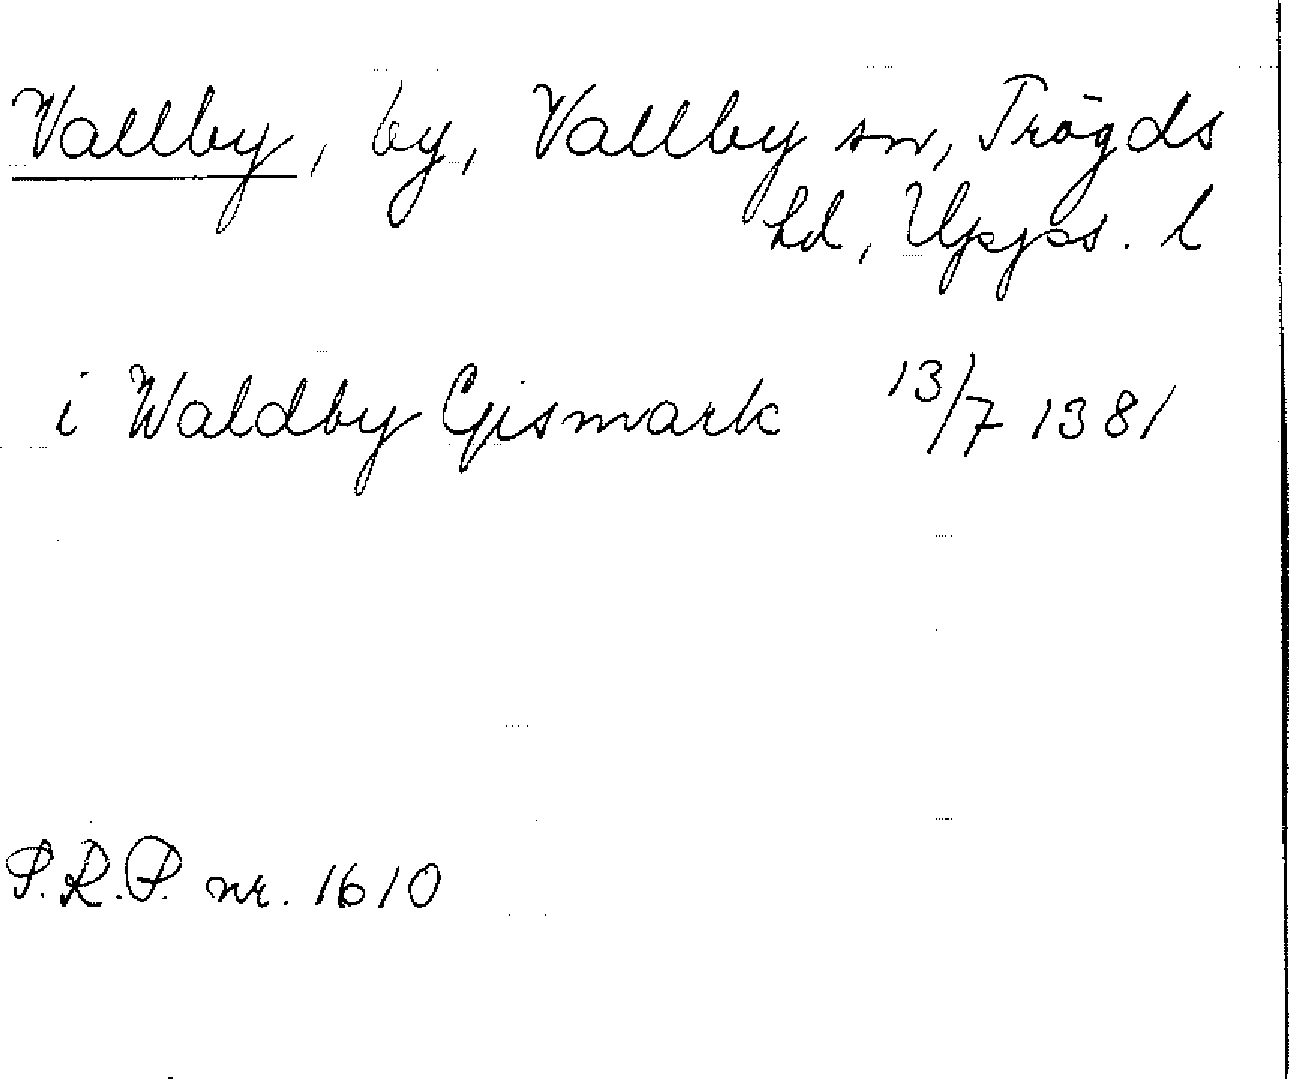 Vallby, by, Vallby sn, Trögds
hd, Upps. l
i Waldby Gismark 13/7 1381
P.R.P. nr. 1610